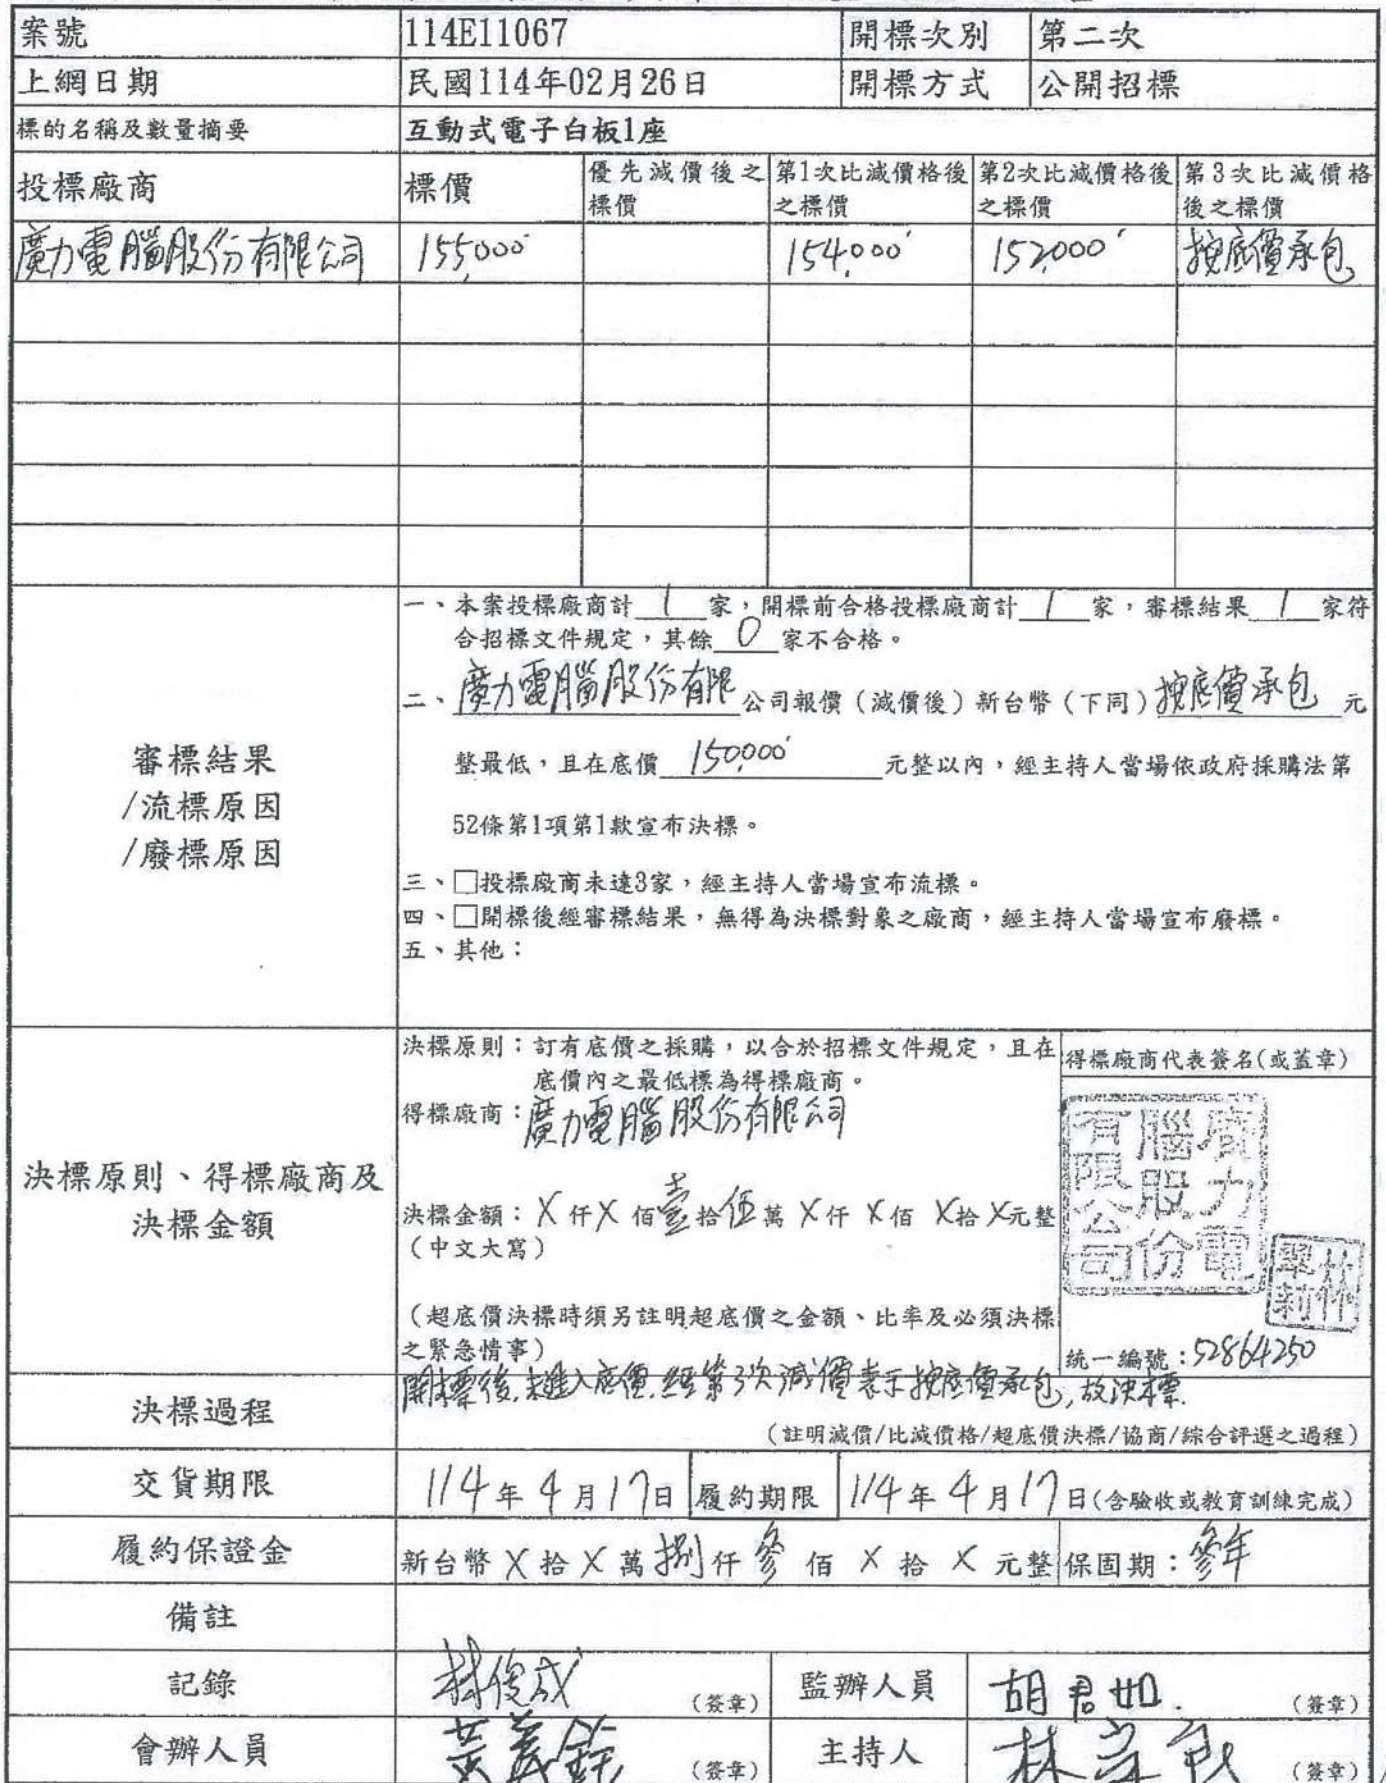 案號 114E11067 開標次別 第二次
上網日期 民國114年02月26日 開標方式 公開招標
標的名稱及數量摘要 互動式電子白板1座
投標廠商 標價 優先減價後之標價 第1次比減價格後之標價 第2次比減價格後之標價 第3次比減價格後之標價
廣力電腦股份有限公司 155,000 154,000 152,000 按底價承包
審標結果
/流標原因
/廢標原因
一、本案投標廠商計 1 家,開標前合格投標廠商計 1 家,審標結果 1 家符
合招標文件規定,其餘 0 家不合格。
二、廣力電腦股份有限公司報價(減價後)新台幣(下同)按底價承包元
整最低,且在底價 150,000 元整以內,經主持人當場依政府採購法第
52條第1項第1款宣布決標。
三、□投標廠商未達3家,經主持人當場宣布流標。
四、□開標後經審標結果,無得為決標對象之廠商,經主持人當場宣布廢標。
五、其他:
決標原則、得標廠商及
決標金額
決標原則:訂有底價之採購,以合於招標文件規定,且在
底價內之最低標為得標廠商。
得標廠商:廣力電腦股份有限公司
決標金額:X仟X佰壹拾伍萬X仟X佰X拾X元整
(中文大寫)
(超底價決標時須另註明超底價之金額、比率及必須決標
之緊急情事)
得標廠商代表簽名(或蓋章)
廣力電
腦股份
有限公司
統一編號:52864250
決標過程
開標後,未進入底價,經第3次減價表示按底價承包,故決標.
(註明減價/比減價格/超底價決標/協商/綜合評選之過程)
交貨期限 114年4月17日 履約期限 114年4月17日(含驗收或教育訓練完成)
履約保證金 新台幣X拾X萬捌仟參佰X拾X元整 保固期:參年
備註
記錄 林俊成 (簽章) 監辦人員 胡君如. (簽章)
會辦人員 (簽章) 主持人 (簽章)